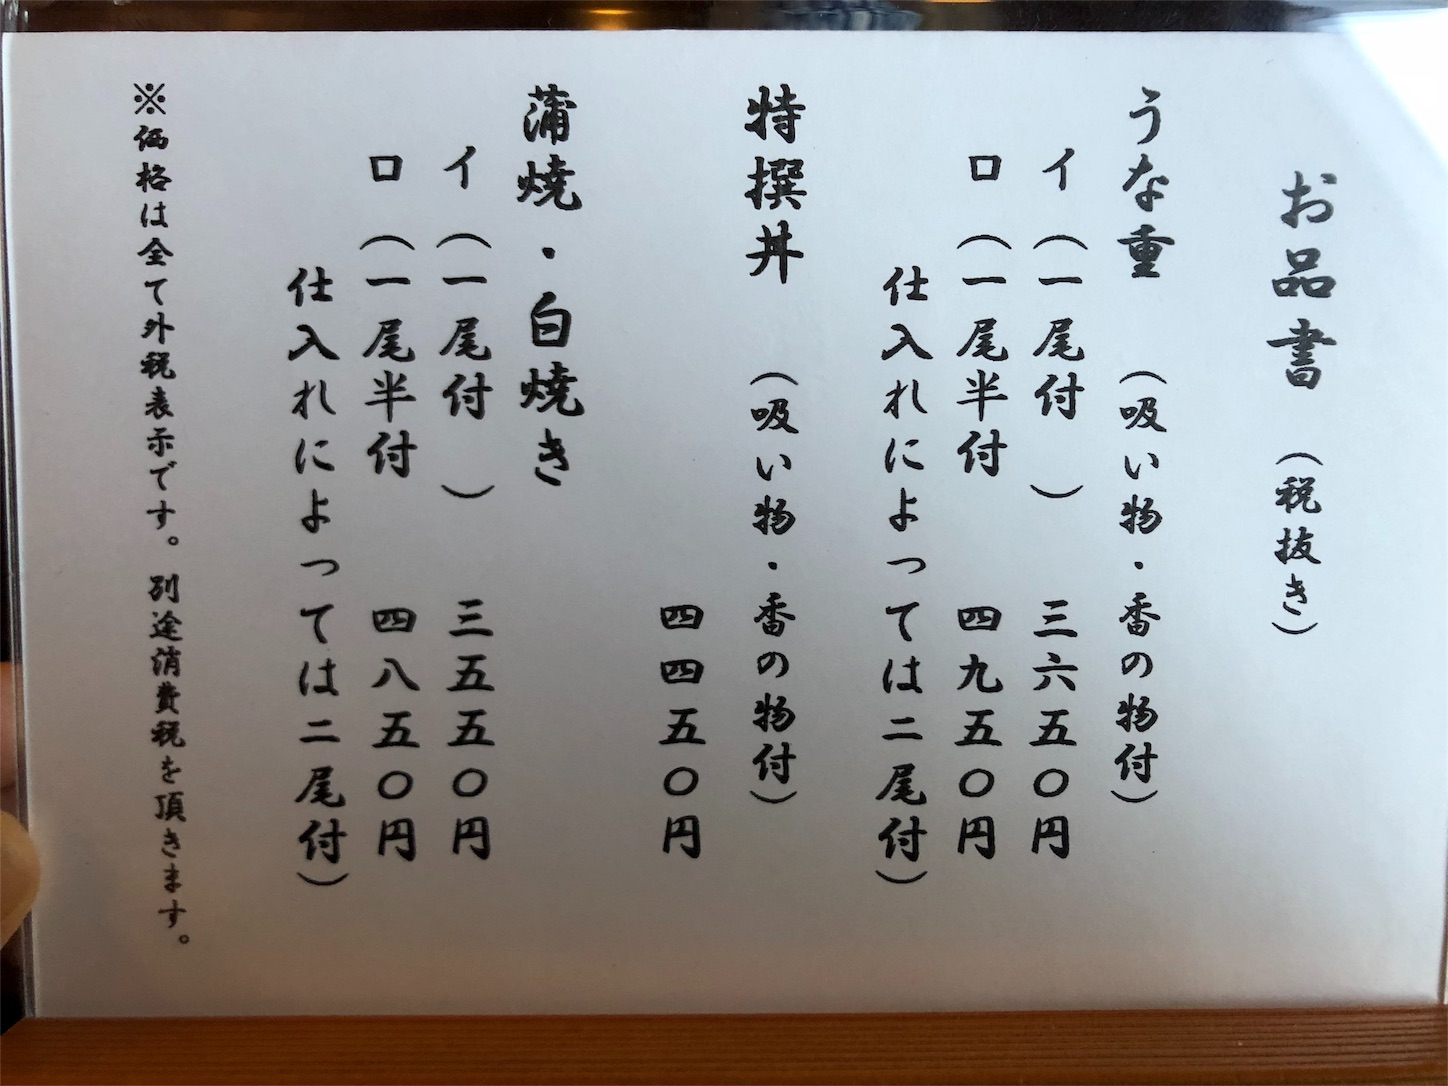 お品書（税抜き）
うな重（吸い物・香の物付）
イ（一尾付　）三六五〇円
ロ（一尾半付　四九五〇円
仕入れによっては二尾付）
特撰丼（吸い物・香の物付）
四四五〇円
蒲焼・白焼き
イ（一尾付　）三五五〇円
ロ（一尾半付　四八五〇円
仕入れによっては二尾付）
※価格は全て外税表示です。別途消費税を頂きます。